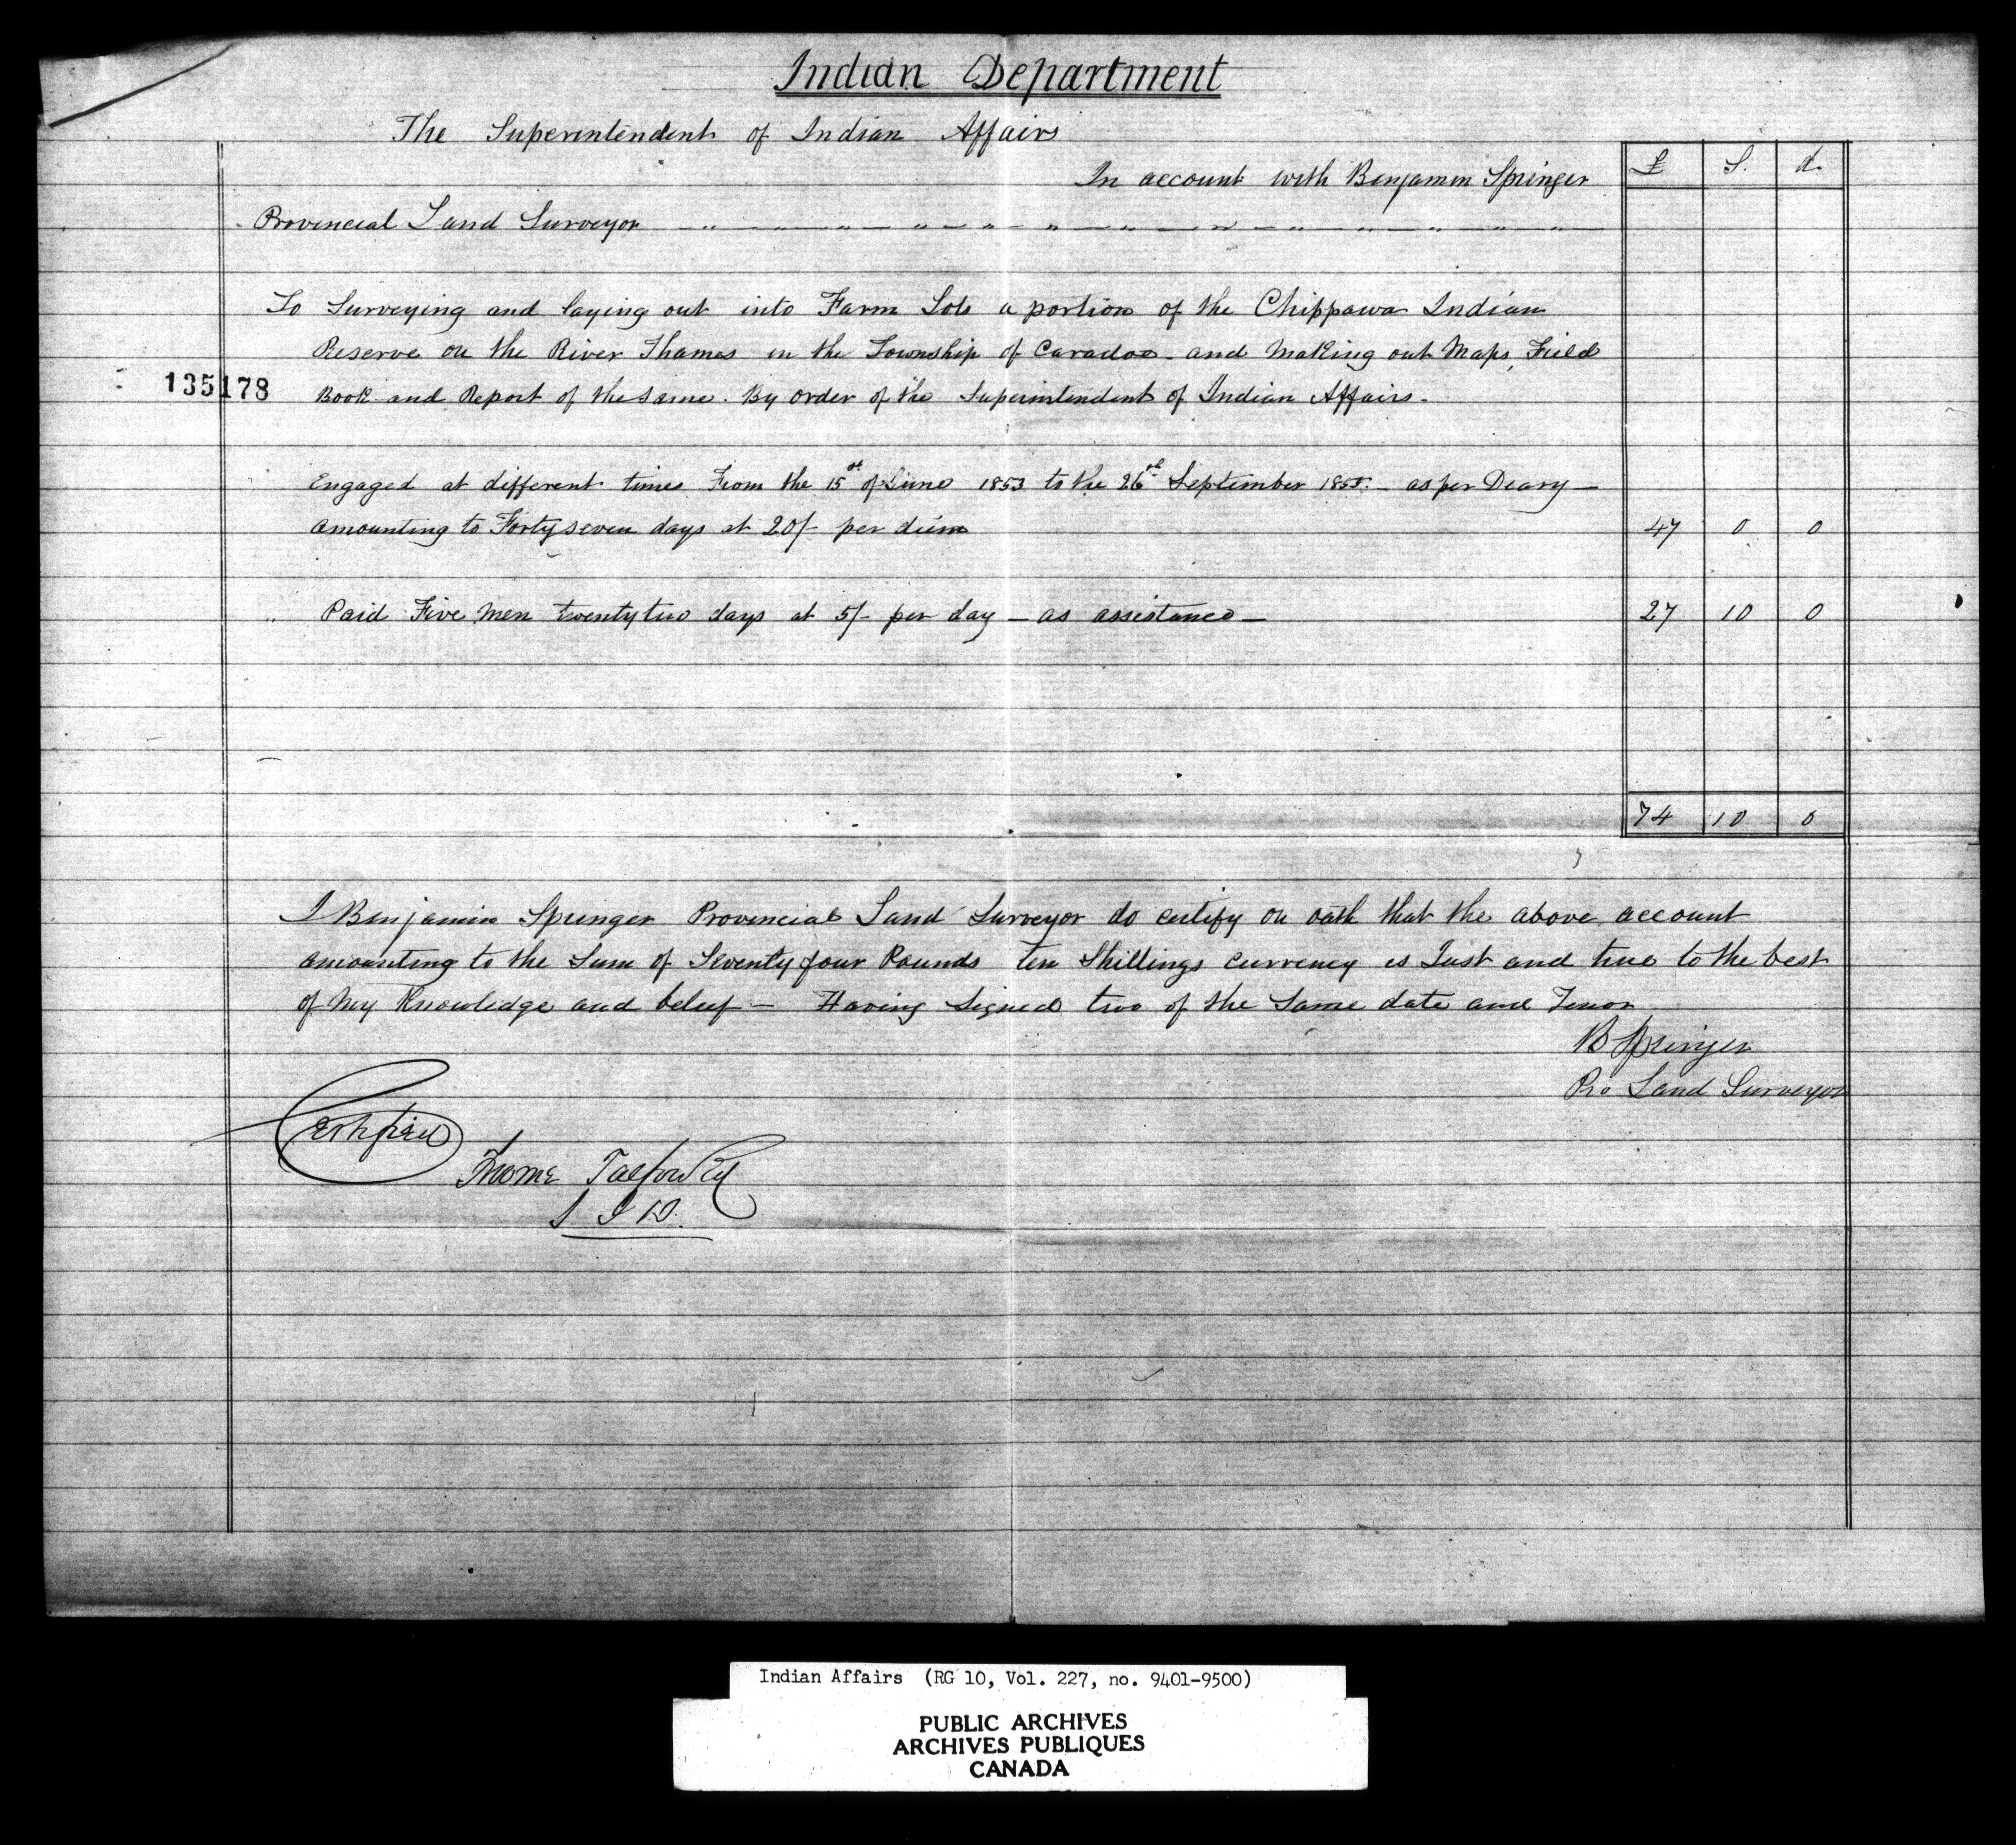 Indian Department
The Superintendent of Indian Affairs
In account with Benjamin Springer
£ S. d.
Provincial Land Surveyor
To Surveying and laying out into Farm Lots a portion of the Chippawa Indian
Reserve on the River Thames in the Township of Caradoc - and Making out Maps, Field
135178
Book and Report of the Same. By order of the Superintendent of Indian Affairs.
Engaged at different times From the 15th of June 1853 to the 26th September 1855. - as per Deary -
amounting to Forty seven days at 20/- per diem 47 0 0
" Paid Five Men twenty two days at 5/- per day - as assistance - 27 10 0
74 10 0
I Benjamin Springer Provincial Land Surveyor do certify on oath that the above account
amounting to the Sum of Seventy four Pounds ten Shillings currency is Just and true to the best
of My Knowledge and belief - Having Signed two of the Same date and Tenor
B Springer
Pro Land Surveyor
Certified
Talfourd
S I D.
Indian Affairs (RG 10, Vol. 227, no. 9401-9500)
PUBLIC ARCHIVES
ARCHIVES PUBLIQUES
CANADA